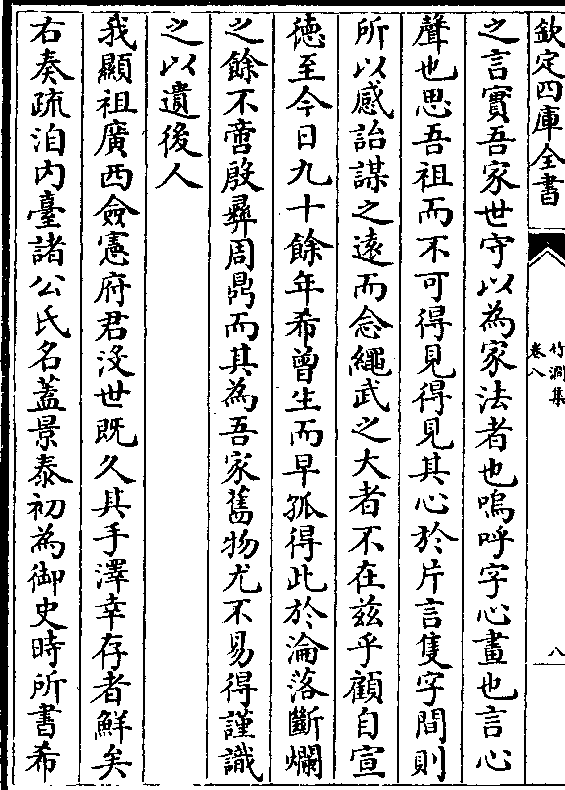 欽定四庫全書
竹澗集
卷八
八
之言實吾家世守以為家法者也嗚呼字心畫也言心
聲也思吾祖而不可得見得見其心於片言隻字間則
所以感詒謀之遠而念繩武之大者不在兹乎顧自宣
徳至今日九十餘年希曾生而早孤得此於淪落斷爛
之餘不啻殷彞周鼎而其為吾家舊物尤不易得謹識
之以遺後人
我顯祖廣西僉憲府君没世既久其手澤幸存者鮮矣
右奏疏洎内臺諸公氏名葢景泰初為御史時所書希